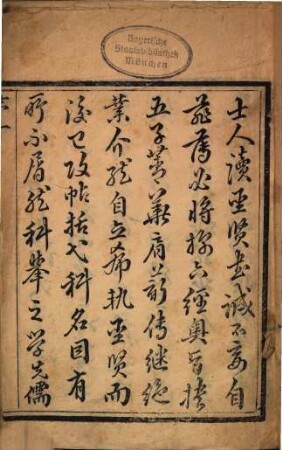 Bayerische
Staatsbibliothek
München
士人讀聖賢書誠不妄自
菲薄必將探六經奧旨接
五子菁華肩薪傳継絶
業介然自立薄執聖賢而
後已攻帖括弋科名固有
所不屑然科舉之学先儒